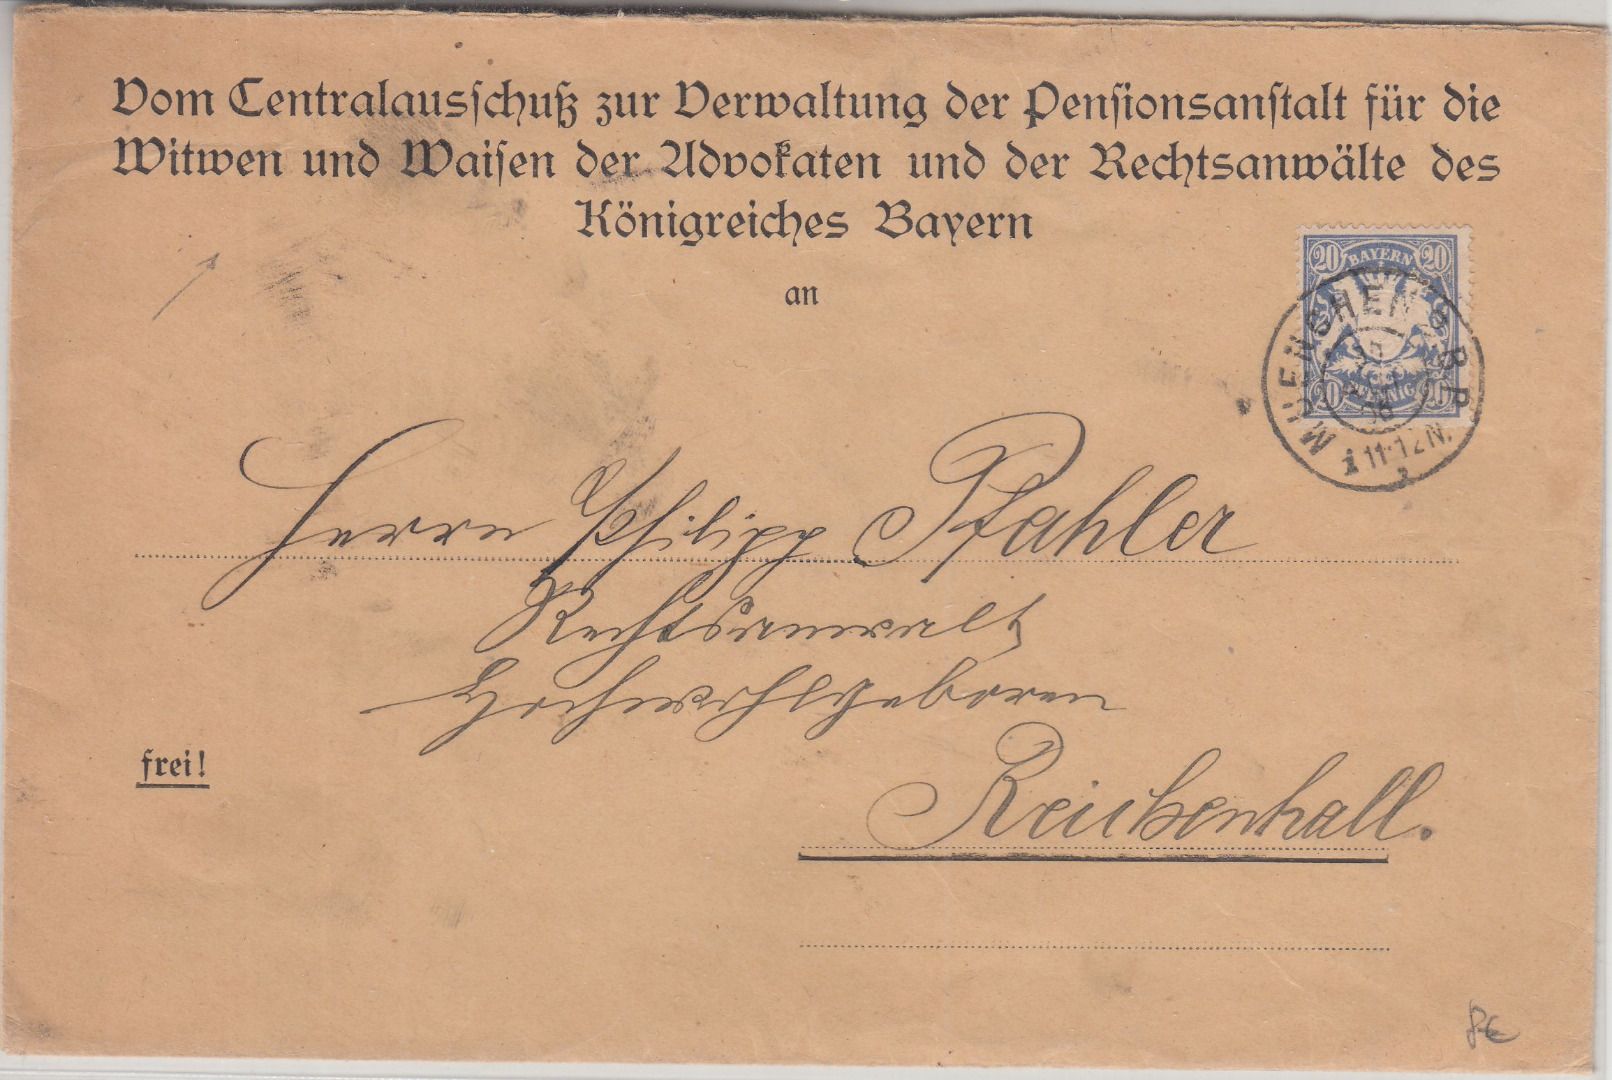 Vom Centralausschuß zur Verwaltung der Pensionsanstalt für die
Witwen und Waisen der Advokaten und der Rechtsanwälte des
Königreiches Bayern
an
20 BAYERN 20
20 PFENNIG 20
MUENCHEN
11-12 N.
Herrn Philipp Pfahler
Rechtsanwalt
Hochwohlgeboren
frei!
Reichenhall.
8€